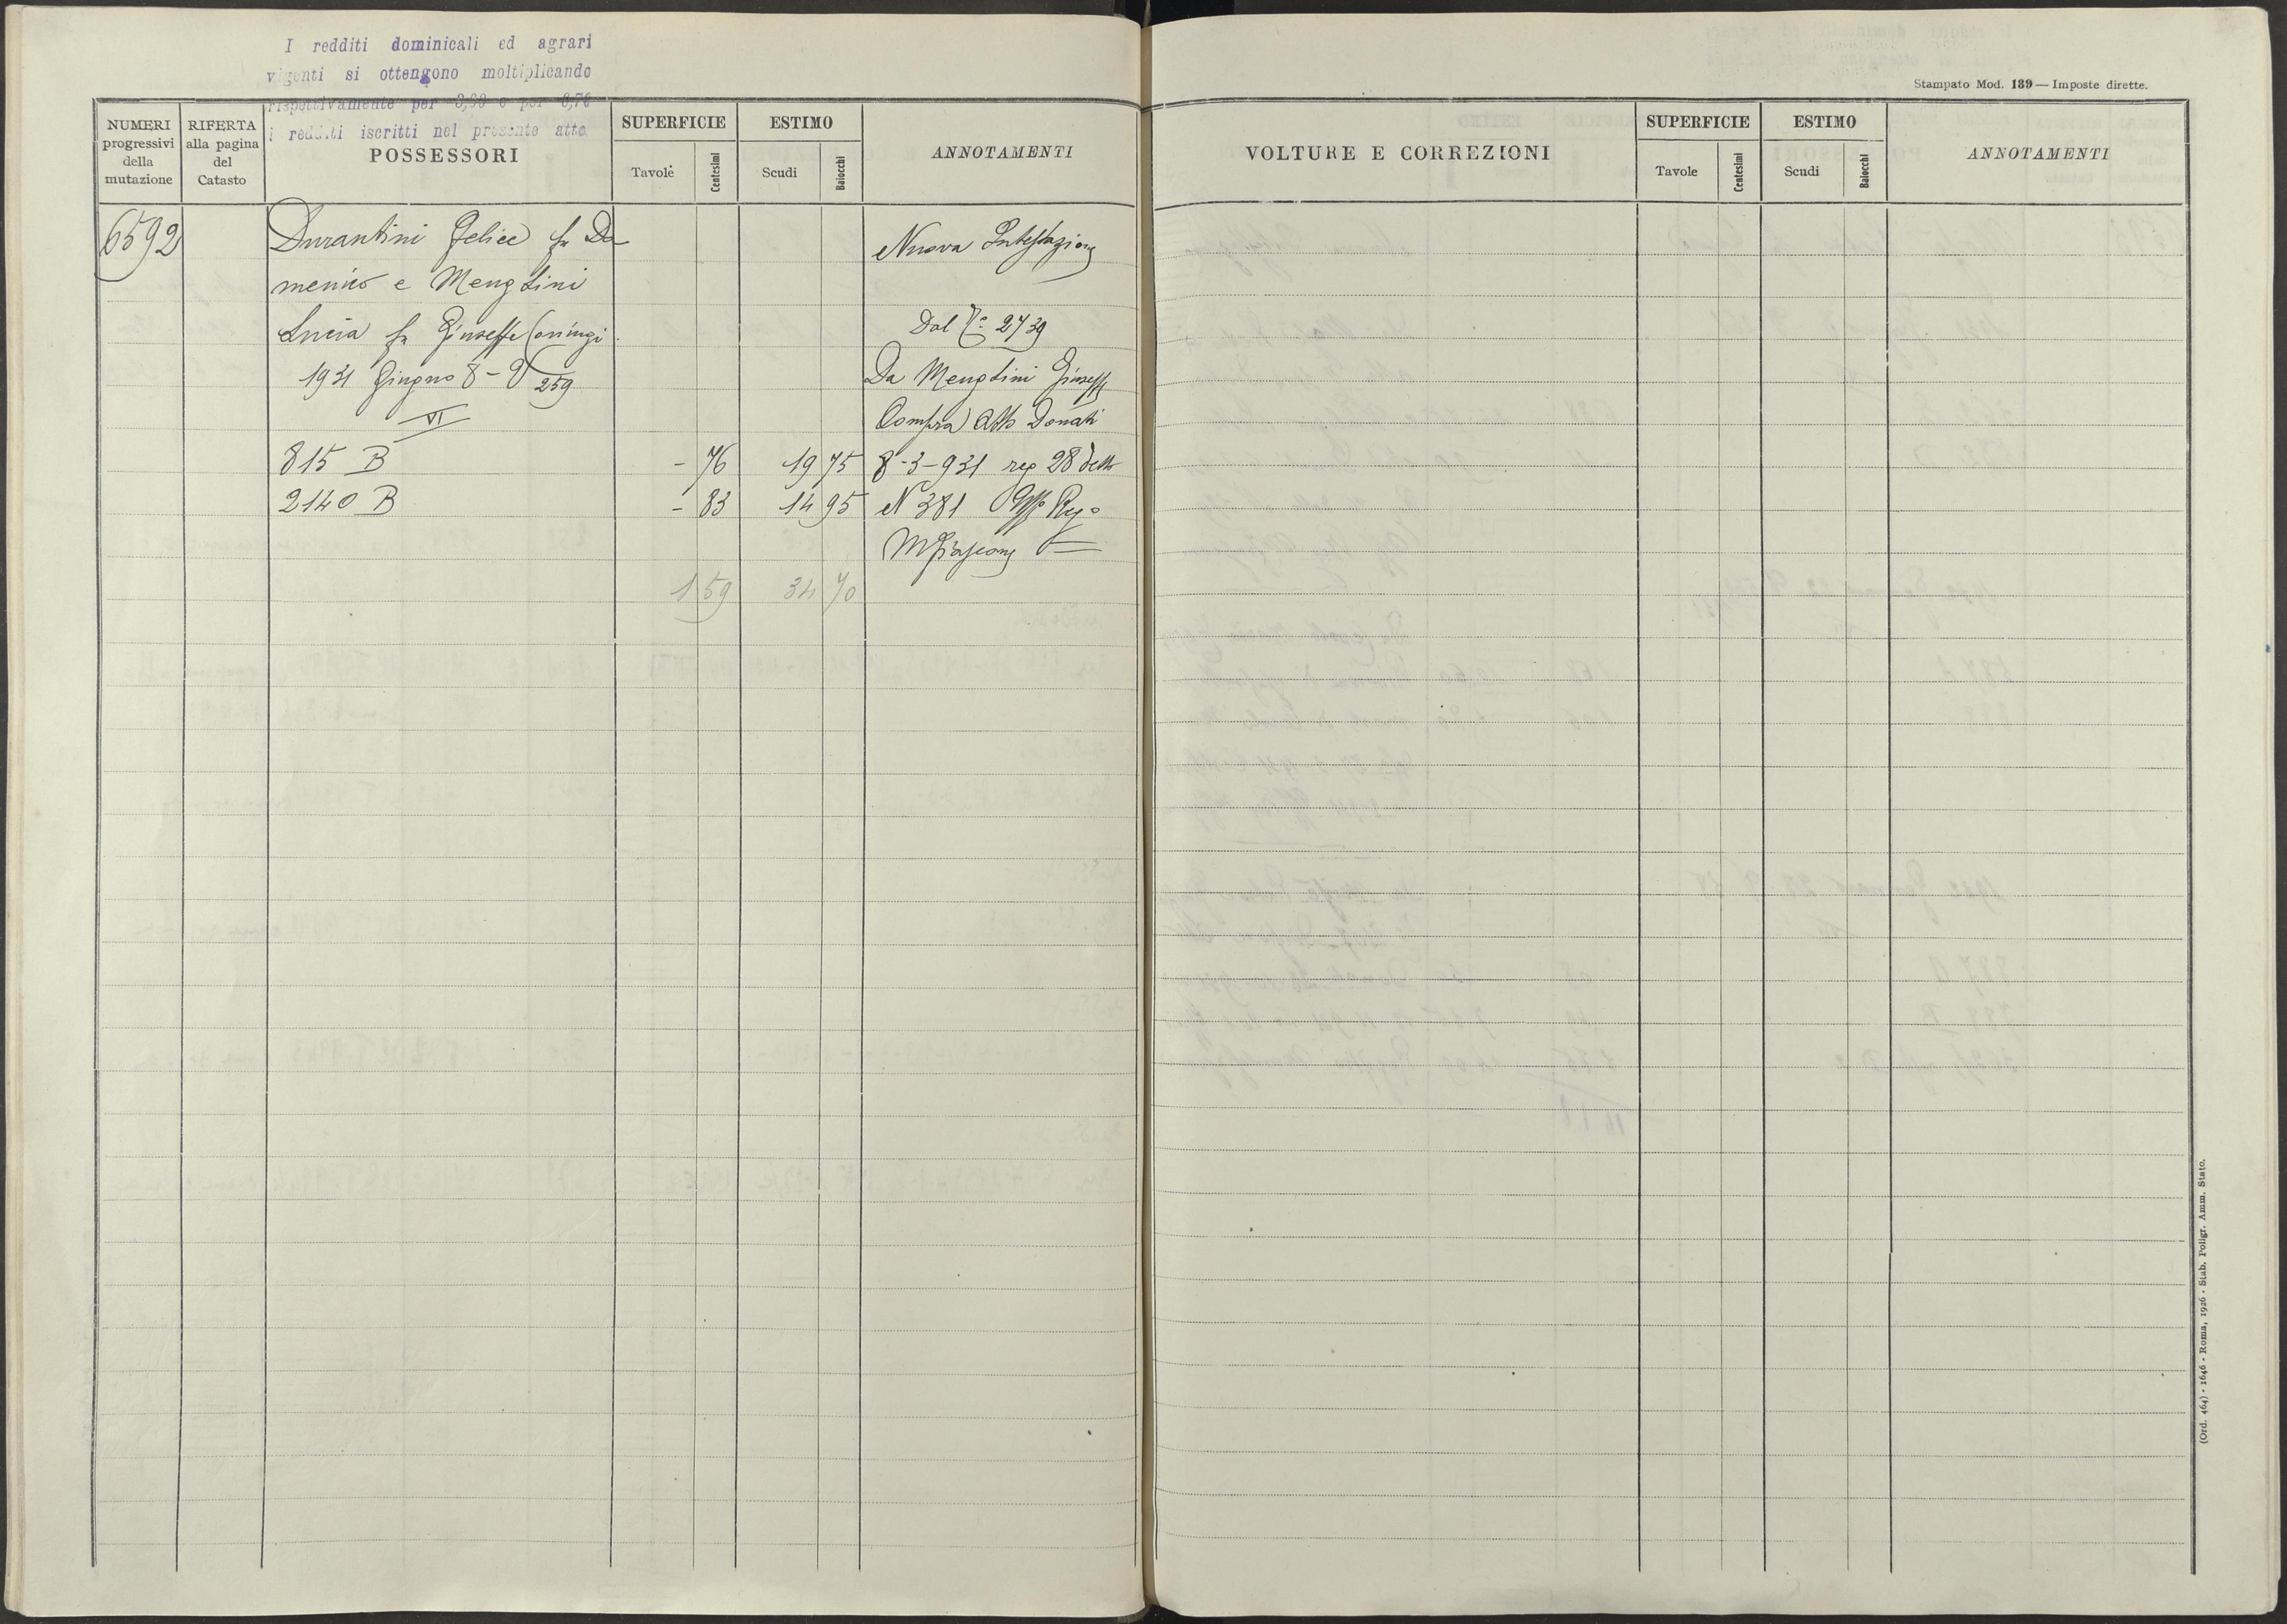 I redditi dominicali ed agrari
vigenti si ottengono moltiplicando
rispettivamente per 3,60 e per
i redditi iscritti nel presente atto.
Stampato Mod. 139 — Imposte dirette.
NUMERI progressivi della mutazione
RIFERTA alla pagina del Catasto
POSSESSORI
SUPERFICIE
Tavole
Centesimi
ESTIMO
Scudi
Baiocchi
ANNOTAMENTI
VOLTURE E CORREZIONI
SUPERFICIE
Tavole
Centesimi
ESTIMO
Scudi
Baiocchi
ANNOTAMENTI
6592 Durantini Felice fu Do Nuova Intestazione
menico e Mengtini
Lucia fu Giuseppe Coniugi Dal 2739
1931 Giugno 8 - 259 Da Mengtini Giuseppe
VI Compra Atto Donati
815 B - 76 19 75 8-3-931 reg 28 detto
2140 B - 83 14 95 N 381 Uff Reg
Mfiascone
1 59 34 70
(Ord. 464) - 1646 - Roma, 1926 - Stab. Poligr. Amm. Stato.